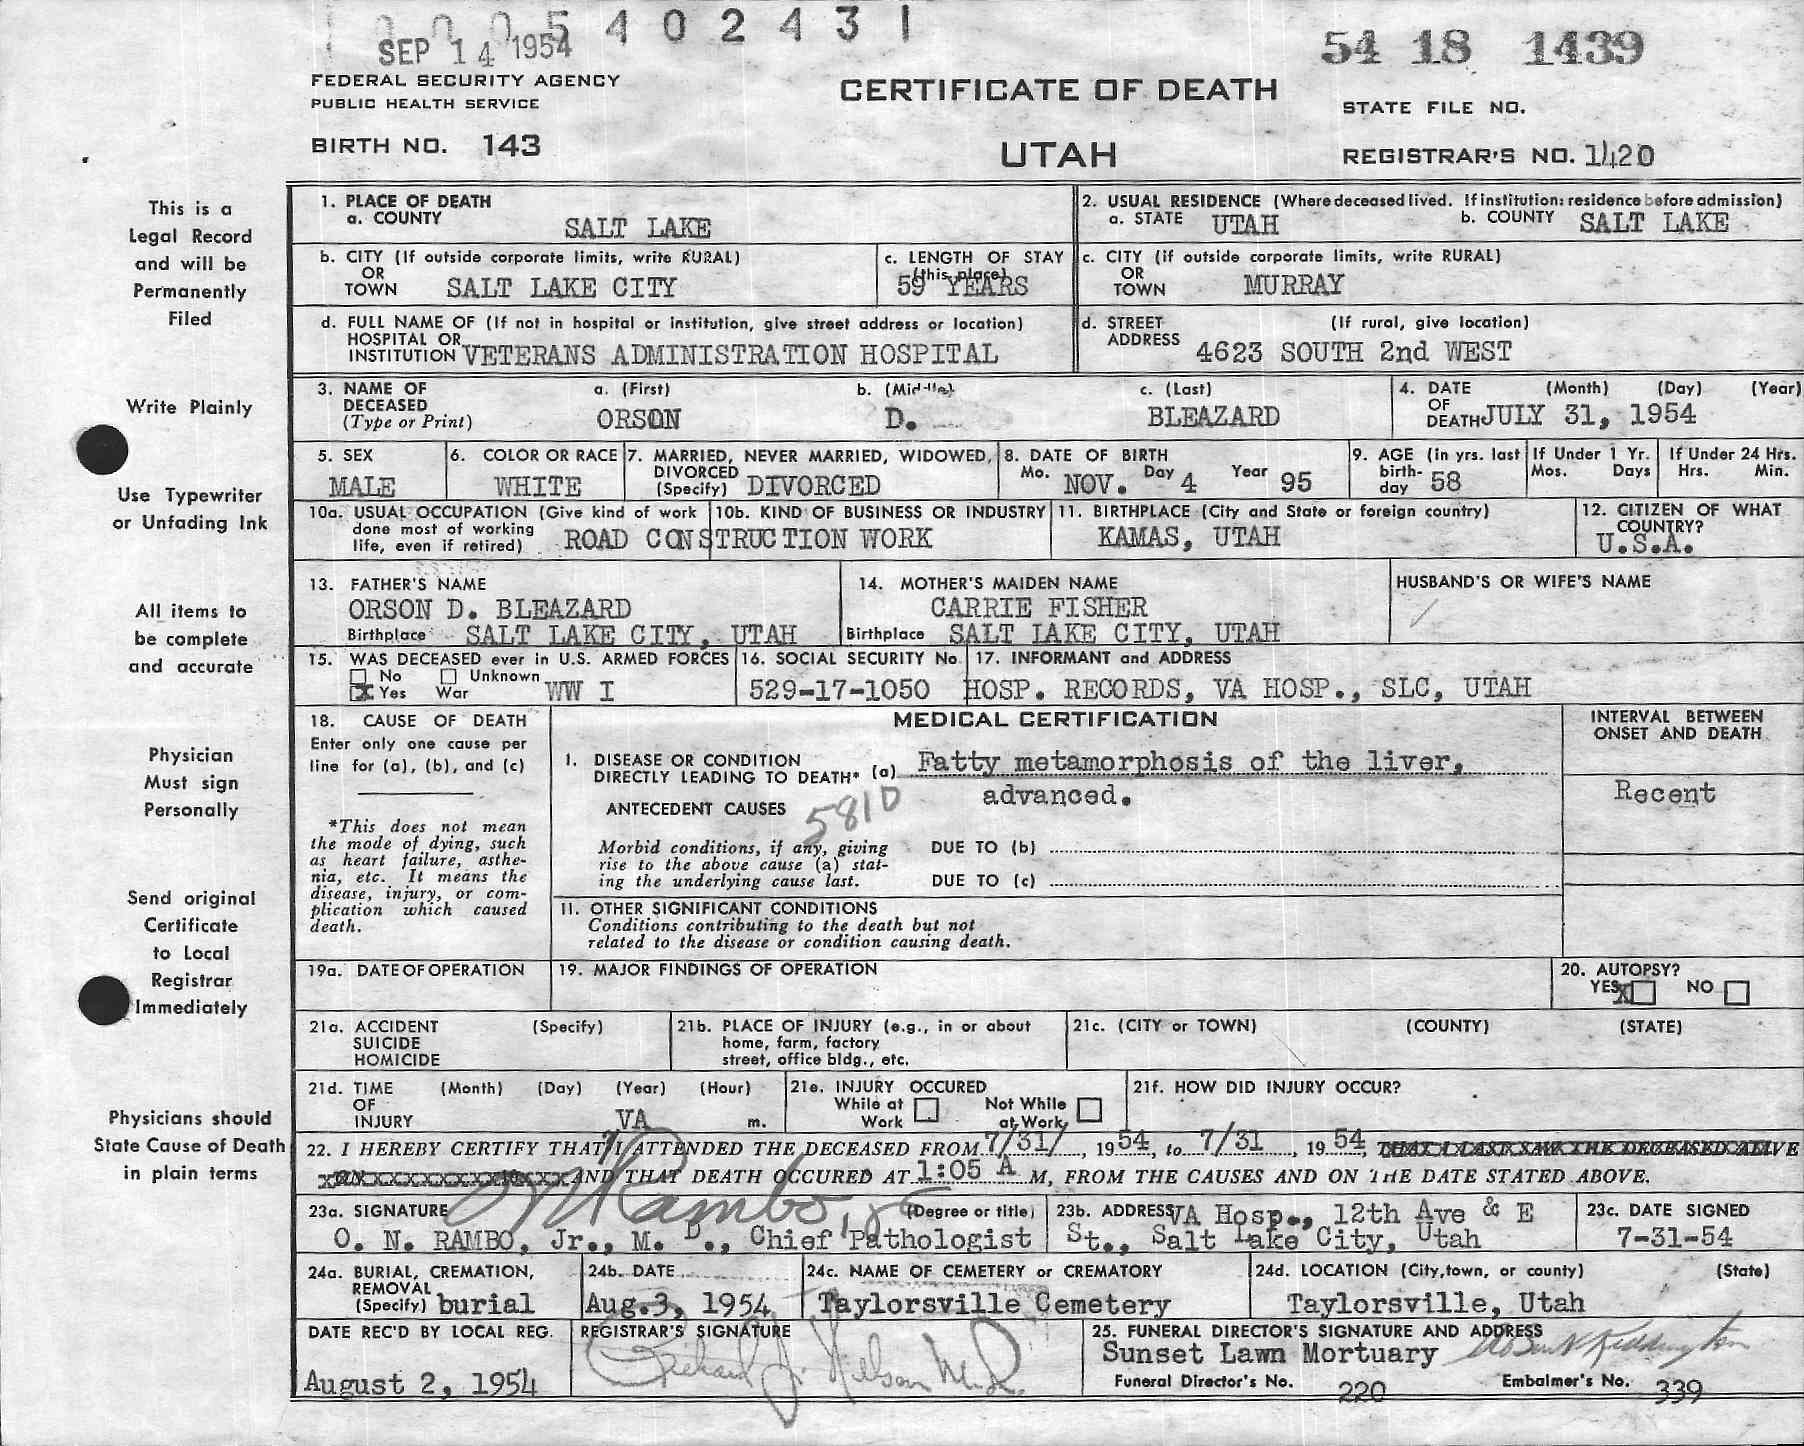 0 0 0 5 4 0 2 4 3 1
SEP 14 1954
54 18 1439
FEDERAL SECURITY AGENCY
PUBLIC HEALTH SERVICE
CERTIFICATE OF DEATH
STATE FILE NO.
BIRTH NO. 143
UTAH
REGISTRAR'S NO. 1420
This is a
Legal Record
and will be
Permanently
Filed
Write Plainly
Use Typewriter
or Unfading Ink
All items to
be complete
and accurate
Physician
Must sign
Personally
Send original
Certificate
to Local
Registrar
Immediately
Physicians should
State Cause of Death
in plain terms
1. PLACE OF DEATH
a. COUNTY SALT LAKE
2. USUAL RESIDENCE (Where deceased lived. If institution: residence before admission)
a. STATE UTAH b. COUNTY SALT LAKE
b. CITY (If outside corporate limits, write RURAL)
OR
TOWN SALT LAKE CITY
c. LENGTH OF STAY
(this place)
59 YEARS
c. CITY (if outside corporate limits, write RURAL)
OR
TOWN MURRAY
d. FULL NAME OF (If not in hospital or institution, give street address or location)
HOSPITAL OR
INSTITUTION VETERANS ADMINISTRATION HOSPITAL
d. STREET (If rural, give location)
ADDRESS 4623 SOUTH 2nd WEST
3. NAME OF a. (First) b. (Middle) c. (Last)
DECEASED
(Type or Print) ORSON D. BLEAZARD
4. DATE (Month) (Day) (Year)
OF
DEATH JULY 31, 1954
5. SEX
MALE
6. COLOR OR RACE
WHITE
7. MARRIED, NEVER MARRIED, WIDOWED,
DIVORCED
(Specify) DIVORCED
8. DATE OF BIRTH
Mo. NOV. Day 4 Year 95
9. AGE (in yrs. last
birth-
day 58
If Under 1 Yr.
Mos. Days
If Under 24 Hrs.
Hrs. Min.
10a. USUAL OCCUPATION (Give kind of work
done most of working
life, even if retired)
10b. KIND OF BUSINESS OR INDUSTRY
ROAD CONSTRUCTION WORK
11. BIRTHPLACE (City and State or foreign country)
KAMAS, UTAH
12. CITIZEN OF WHAT
COUNTRY?
U.S.A.
13. FATHER'S NAME
ORSON D. BLEAZARD
Birthplace SALT LAKE CITY, UTAH
14. MOTHER'S MAIDEN NAME
CARRIE FISHER
Birthplace SALT LAKE CITY, UTAH
HUSBAND'S OR WIFE'S NAME
15. WAS DECEASED ever in U.S. ARMED FORCES
No Unknown
X Yes War WW I
16. SOCIAL SECURITY No.
529-17-1050
17. INFORMANT and ADDRESS
HOSP. RECORDS, VA HOSP., SLC, UTAH
18. CAUSE OF DEATH
Enter only one cause per
line for (a), (b), and (c)
*This does not mean
the mode of dying, such
as heart failure, asthe-
nia, etc. It means the
disease, injury, or com-
plication which caused
death.
MEDICAL CERTIFICATION
I. DISEASE OR CONDITION
DIRECTLY LEADING TO DEATH* (a) Fatty metamorphosis of the liver,
advanced.
ANTECEDENT CAUSES
5810
Morbid conditions, if any, giving
rise to the above cause (a) stat-
ing the underlying cause last.
DUE TO (b)
DUE TO (c)
II. OTHER SIGNIFICANT CONDITIONS
Conditions contributing to the death but not
related to the disease or condition causing death.
INTERVAL BETWEEN
ONSET AND DEATH
Recent
19a. DATE OF OPERATION
19. MAJOR FINDINGS OF OPERATION
20. AUTOPSY?
YES X NO
21a. ACCIDENT (Specify)
SUICIDE
HOMICIDE
21b. PLACE OF INJURY (e.g., in or about
home, farm, factory
street, office bldg., etc.
21c. (CITY or TOWN) (COUNTY) (STATE)
21d. TIME (Month) (Day) (Year) (Hour)
OF
INJURY m.
21e. INJURY OCCURED
While at Work Not While at Work
21f. HOW DID INJURY OCCUR?
VA
22. I HEREBY CERTIFY THAT I ATTENDED THE DECEASED FROM 7/31/, 1954, to 7/31, 1954, THAT I LAST SAW THE DECEASED ALIVE
ON AND THAT DEATH OCCURED AT 1:05 A M, FROM THE CAUSES AND ON THE DATE STATED ABOVE.
23a. SIGNATURE O N Rambo, Jr (Degree or title)
O. N. RAMBO, Jr., M. D., Chief Pathologist
23b. ADDRESS VA Hosp., 12th Ave & E
St., Salt Lake City, Utah
23c. DATE SIGNED
7-31-54
24a. BURIAL, CREMATION,
REMOVAL
(Specify) burial
24b. DATE
Aug. 3, 1954
24c. NAME OF CEMETERY or CREMATORY
Taylorsville Cemetery
24d. LOCATION (City, town, or county) (State)
Taylorsville, Utah
DATE REC'D BY LOCAL REG.
August 2, 1954
REGISTRAR'S SIGNATURE
Richard J. Nelson M.D.
25. FUNERAL DIRECTOR'S SIGNATURE AND ADDRESS
Sunset Lawn Mortuary
Funeral Director's No. 220 Embalmer's No. 339